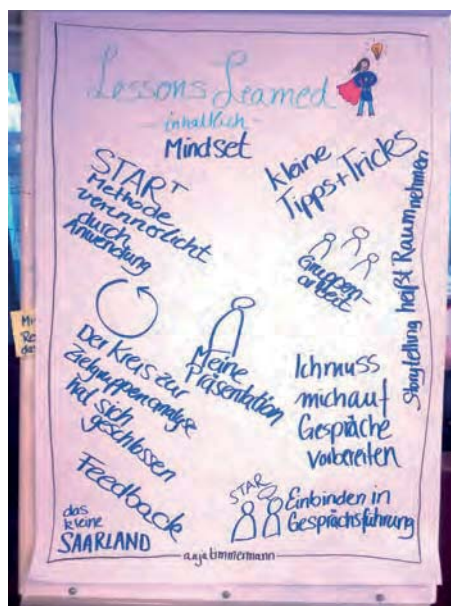 Lessons Learned
- inhaltlich -
Mindset
START
Methode
verinnerlicht
durch
Anwendung
kleine
Tipps+Tricks
Gruppen-
arbeit
Storytelling heißt Raum nehmen
Der Kreis zur
Zielgruppenanalyse
hat sich
geschlossen
Meine
Präsentation
Ich muss
mich auf
Gespräche
vorbereiten
Feedback
STAR
Einbinden in
Gesprächsführung
das
kleine
SAARLAND
anja timmermann